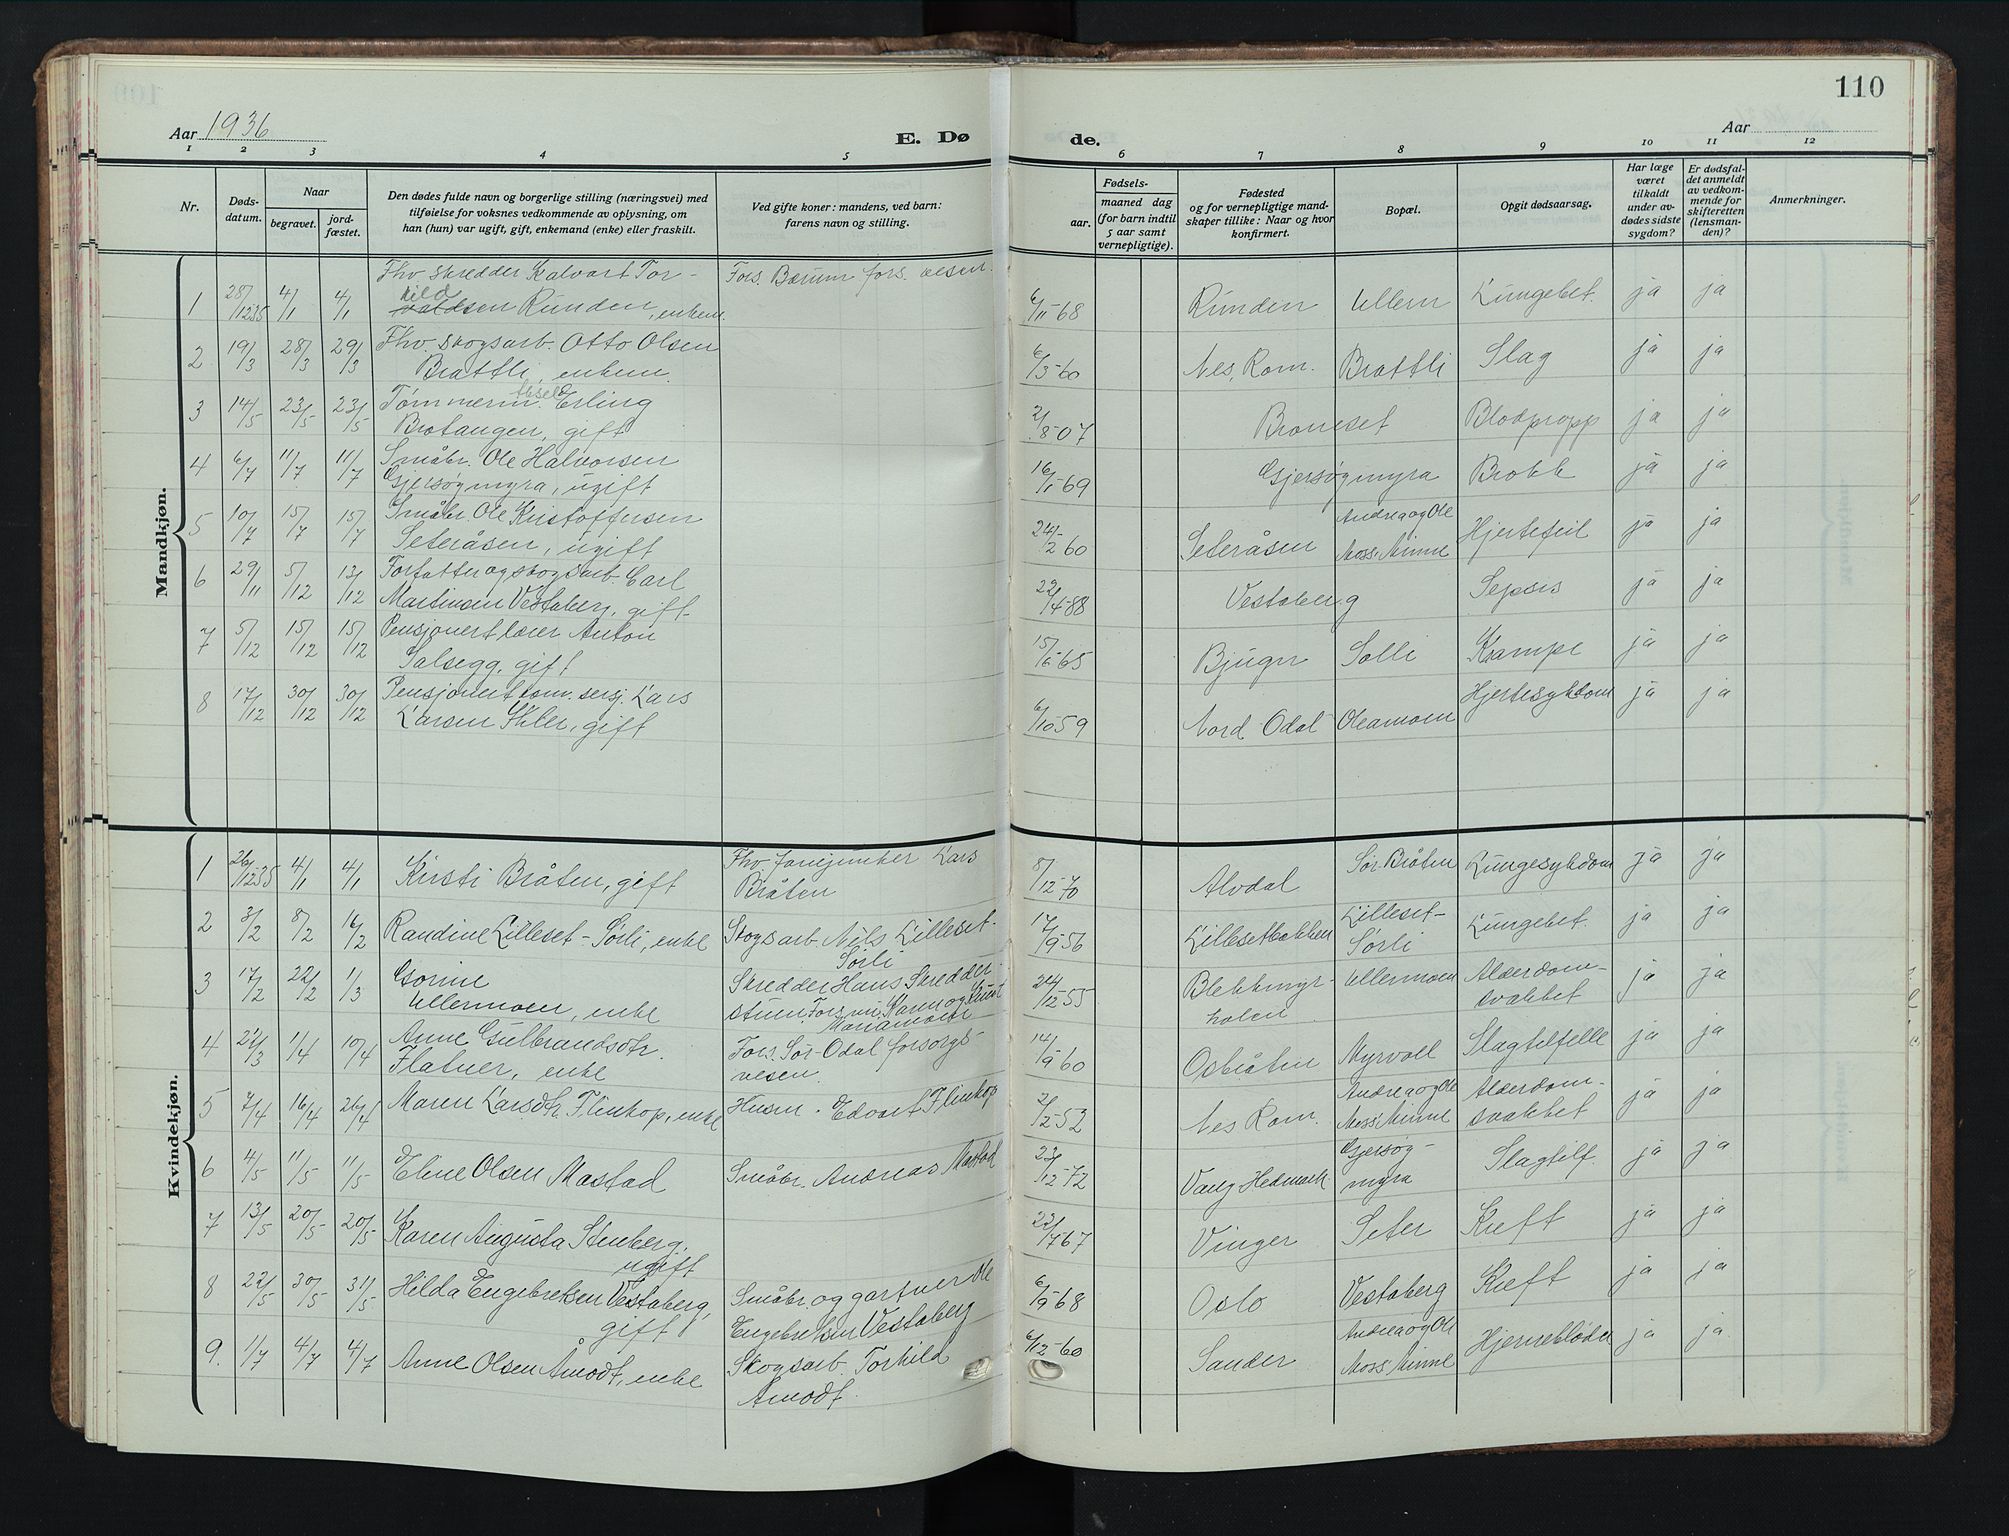 110
Aar 1936
E. Dø
de.
Aar
1 2 3 4 5 6 7 8 9 10 11 12
Nr.
Døds-
datum.
Naar
begravet.
jord-
fæstet.
Den dødes fulde navn og borgerlige stilling (næringsvei) med
tilføielse for voksnes vedkommende av oplysning, om
han (hun) var ugift, gift, enkemand (enke) eller fraskilt.
Ved gifte koner: mandens, ved barn:
farens navn og stilling.
Fødsels-
aar.
maaned dag
(for barn indtil
5 aar samt
vernepligtige).
Fødested
og for vernepligtige mand-
skaper tillike: Naar og hvor
konfirmert.
Bopæl.
Opgit dødsaarsag.
Har læge
været
tilkaldt
under av-
dødes sidste
sygdom?
Er dødsfal-
det anmeldt
av vedkom-
mende for
skifteretten
(lensman-
den)?
Anmerkninger.
Mandkjøn.
1 28/12 35 4/1 4/1 Fhv skredder Halvart Tor-
kild
valdsen Runden, enkem. Fors. Bærum fors. vesen. 6/11-68 Runden Ullern Lungebet. ja ja
2 19/3 28/3 29/3 Fhv skogsarb. Otto Olsen
Brattli, enkem. 6/3-60 Nes, Rom. Brattli Slag ja ja
3 14/5 23/5 23/5 Tømmerm. Erling
Brotangen, gift 2/8-07 Broneset Blodpropp ja ja
4 6/7 11/7 11/7 Småbr. Ole Halvorsen
Gjersøgmyra, ugift 16/1-69 Gjersøgmyra Brokk ja ja
5 10/7 15/7 15/7 Småbr. Ole Kristoffersen
Seteråsen, ugift 24/2-60 Seteråsen Andrea og Ole
Moss' Minne Hjertefeil ja ja
6 29/11 5/12 13/12 Forfatter og skogsarb. Carl
Martinsen Vestaberg, gift 22/4-88 Vestaberg Sepsis ja ja
7 5/12 15/12 15/12 Pensjonert lærer Anton
Salsegg, gift 15/6-65 Bjugn Solli Krampe ja ja
8 17/12 30/12 30/12 Pensjonert kom. sersj. Lars
Larsen Skler, gift 6/10 59 Nord Odal Oleamoen Hjertesykdom ja ja
Kvindekjøn.
1 26/12 35 4/1 4/1 Kirsti Bråten, gift Fhv fanejunker Lars
Bråten 8/12-70 Alvdal Sør-Bråten Lungesykdom ja ja
2 3/2 8/2 16/2 Randine Lilleset-Sørli, enke Skogsarb Nils Lilleset-
Sørli 17/9-56 Lillesetbakken Lilleset-
Sørli Lungebet. ja ja
3 17/2 22/2 1/3 Gonine
Ullernmoen, enke Skredder Hans Skredder-
stuen. Fors. vu. Karen og Knut
Mariamoen 24/12-55 Blekkmyr-
holen Ullernmoen Alderdom-
svakket ja ja
4 21/3 1/4 10/4 Anne Gulbrandsdtr.
Flatner, enke Fors. Sør-Odal forsorgs-
vesen. 14/9-60 Osbråten Myrvoll Slagtilfelle ja ja
5 7/4 16/4 26/4 Maren Larsdtr. Flinkop, enke Husm. Edvart Flinkop 2/2-52 Nes Rom. Andrea og Ole
Moss' Minne Alderdom-
svakket ja ja
6 4/5 11/5 11/5 Eline Olsen Mastad Småbr. Andreas Mastad 23/12-72 Vang Hedmark Gjersøg-
myra Slagtilf. ja ja
7 13/5 20/5 20/5 Karen Augusta Stenberg,
ugift 22/7 67 Vinger Seter Kreft ja ja
8 22/5 30/5 31/5 Hilda Engebretsen Vestaberg,
gift Småbr. og gartner Ole
Engebretsen Vestaberg 6/9-68 Oslo Vestaberg Kreft ja ja
9. 1/7 4/7 4/7 Anne Olsen Åmodt, enke Skogsarb Torkild
Åmodt. 6/12-60 Sander Andrea og Ole
Moss' Minne Hjerneblødn ja ja.